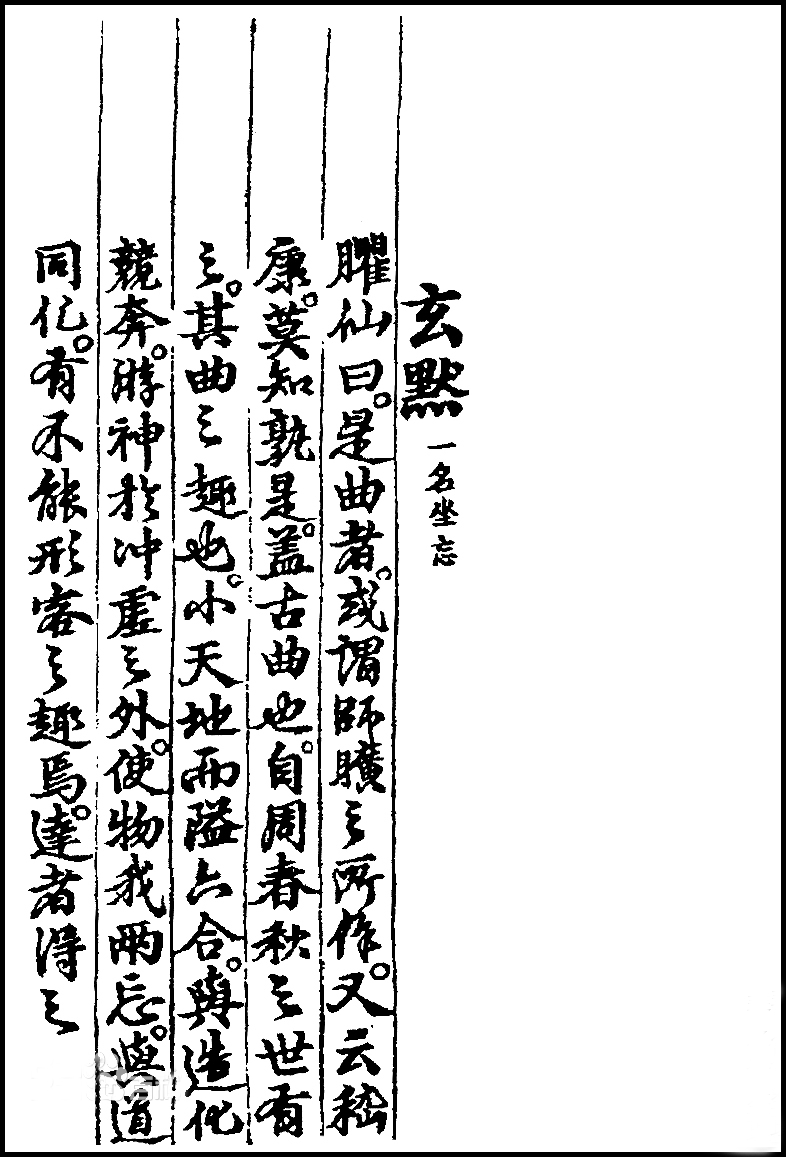 玄默 一名坐忘
臞仙曰。是曲者。或謂師曠之所作。又云嵇
康。莫知孰是。蓋古曲也。自周春秋之世有
之。其曲之趣也。小天地而隘六合。與造化
競奔。游神於冲虛之外。使物我兩忘。與道
同化。有不能形容之趣焉。達者得之